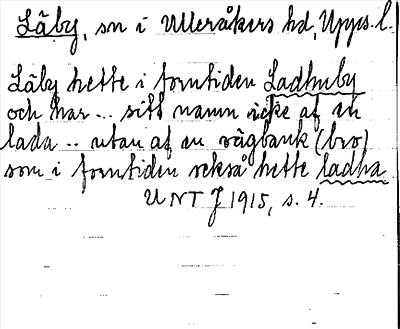 Läby, sn i Ulleråkers hd, Upps. l.
Läby hette i forntiden Ladhuby
och har ... sitt namn icke af en
lada .. utan af en vägbank (bro)
som i forntiden också hette ladha
UNT J 1915, s. 4.